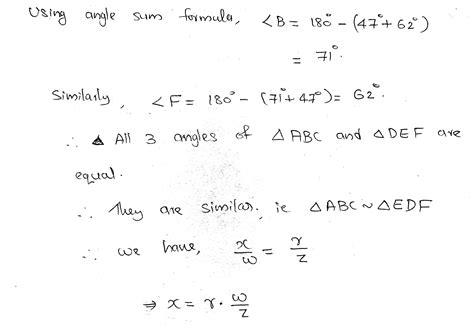 Using angle sum formula, ∠B = 180° – (47° + 62°)
= 71°.
Similarly, ∠F = 180° – (71° + 47°) = 62°.
∴ All 3 angles of △ABC and △DEF are
equal.
∴ They are similar. ie △ABC ~ △EDF
∴ we have, x/w = r/z
⇒ x = r · w/z